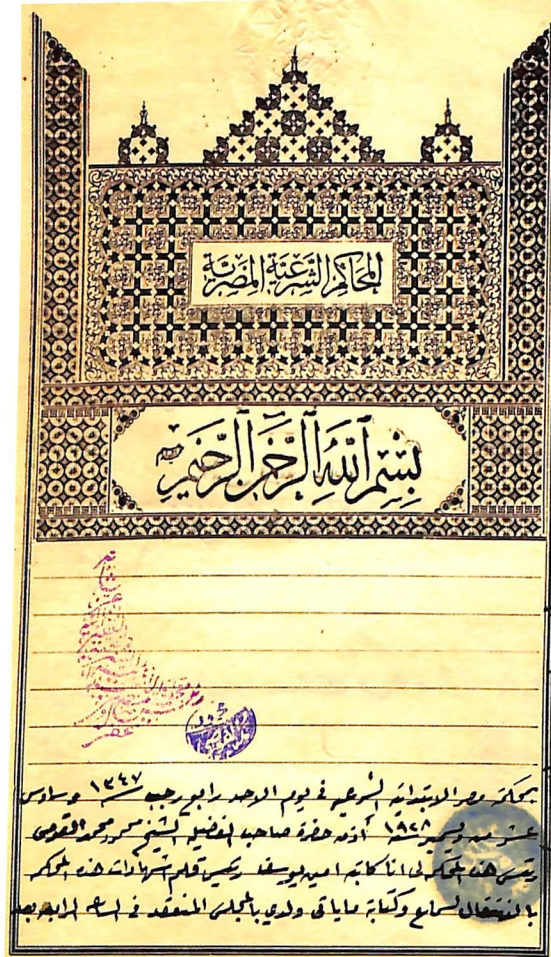 المحاكم الشرعية المصرية
بسم الله الرحمن الرحيم
بمحكمة مصر الابتدائية الشرعية في يوم الاحد رابع رجب سنة ١٣٤٧ وسادس
عشر من ديسمبر سنة ١٩٢٨ أذن حضرة صاحب الفضيلة الشيخ محمد القوصى
رئيس هذه المحكمة لى انا كاتبه امين يوسف رئيس قلم اشهادات هذه المحكمة
بالانتقال لسماع وكتابة ما يأتى ولدى بالمجلس المنعقد فى الساعة الرابعة بعد